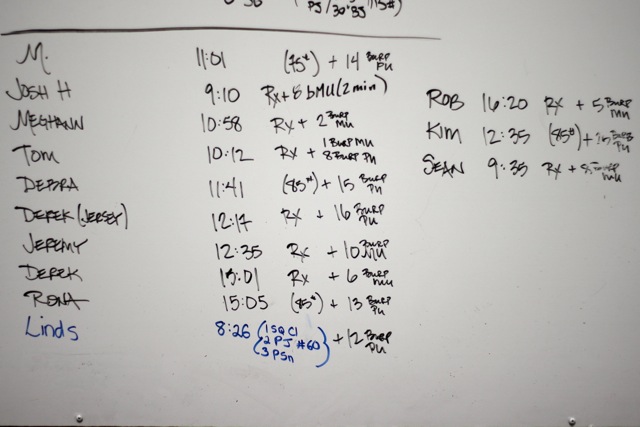 PJ/30"BJ
M. 11:01 (75#) + 14 BURP PU
JOSH H 9:10 Rx + 8 bMU (2 min)
MEGHANN 10:58 Rx + 2 BURP MU
TOM 10:12 Rx + 1 BURP MU 8 BURP PU
DEBRA 11:41 (85#) + 15 BURP PU
DEREK (JERSEY) 12:17 Rx + 16 BURP PU
JEREMY 12:35 Rx + 10 BURP MU
DEREK 13:01 Rx + 6 BURP MU
RONA 15:05 + 13 BURP PU
Linds 8:26 (1 SQ Cl 2 PJ #60 3 PSn) + 12 BURP PU
ROB 16:20 Rx + 5 BURP MU
KIM 12:35 (85#) + BURP PU
SEAN 9:35 Rx + BURP MU